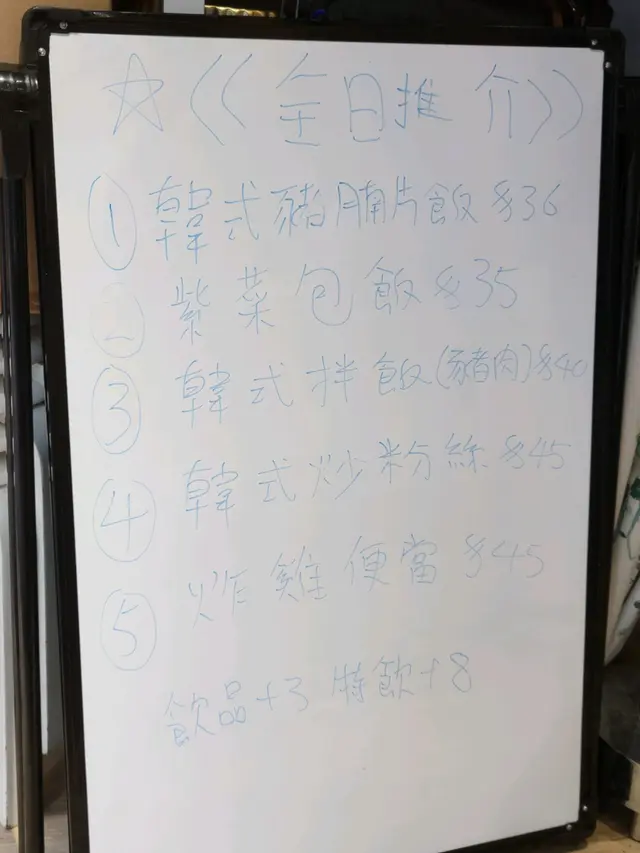 ☆《全日推介》
① 韓式豬腩片飯 $36
② 紫菜包飯 $35
③ 韓式拌飯(豬肉) $40
④ 韓式炒粉絲 $45
⑤ 炸雞便當 $45
飲品+3 特飲+8